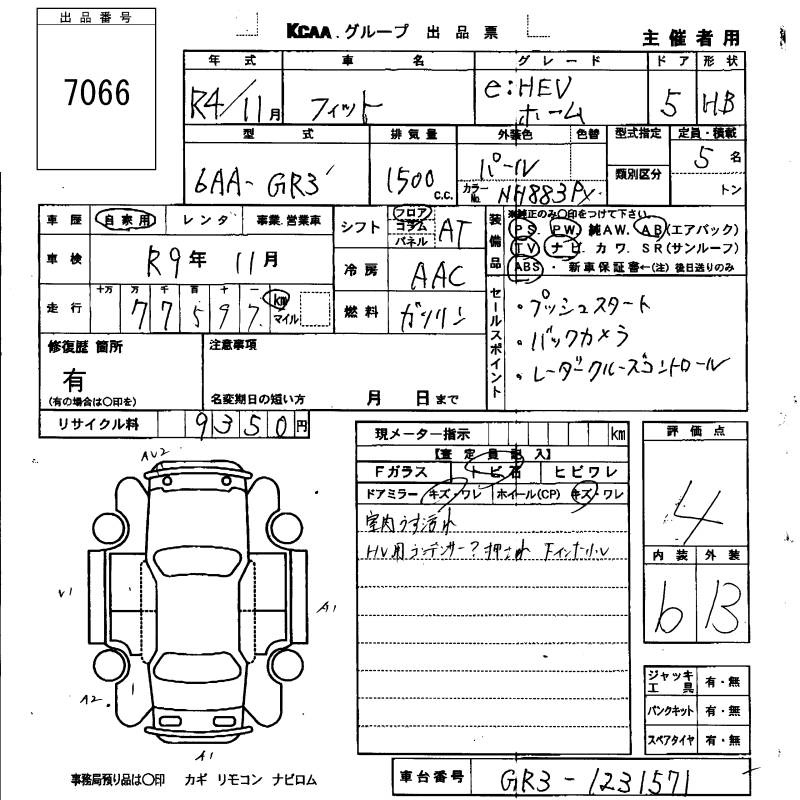 出品番号
7066
KCAA.グループ 出品票
主催者用
年式 車名 グレード ドア 形状
R4/11月 フィット e:HEV ホーム 5 HB
型式 排気量 外装色 色替 型式指定 定員・積載
6AA-GR3 1500 c.c. パール カラーNo. NH883PX 類別区分 5名
トン
車歴 自家用 レンタ 事業.営業車
シフト フロア コラム パネル AT
装備品 ※純正のみ〇印をつけて下さい。
PS. PW. 純AW. AB(エアバック)
TV ナビ. カワ. SR(サンルーフ)
ABS ・ 新車保証書←(注) 後日送りのみ
車検 R9年 11月
冷房 AAC
走行 十万 万 千 百 十 一
77597 km マイル
燃料 ガソリン
セールスポイント
・プッシュスタート
・バックカメラ
・レーダークルーズコントロール
修復歴 箇所
有
(有の場合は〇印を)
注意事項
名変期日の短い方 月 日まで
リサイクル料 9350円
現メーター指示 km
【査定員記入】
Fガラス トビ石 ヒビワレ
ドアミラー キズ・ワレ ホイール(CP) キズ・ワレ
室内うす汚れ
評価点
4
内装 外装
b B
AU2
A1
A2
A1
ジャッキ工具 有・無
パンクキット 有・無
スペアタイヤ 有・無
事務局預り品は〇印 カギ リモコン ナビロム
車台番号 GR3-1231571